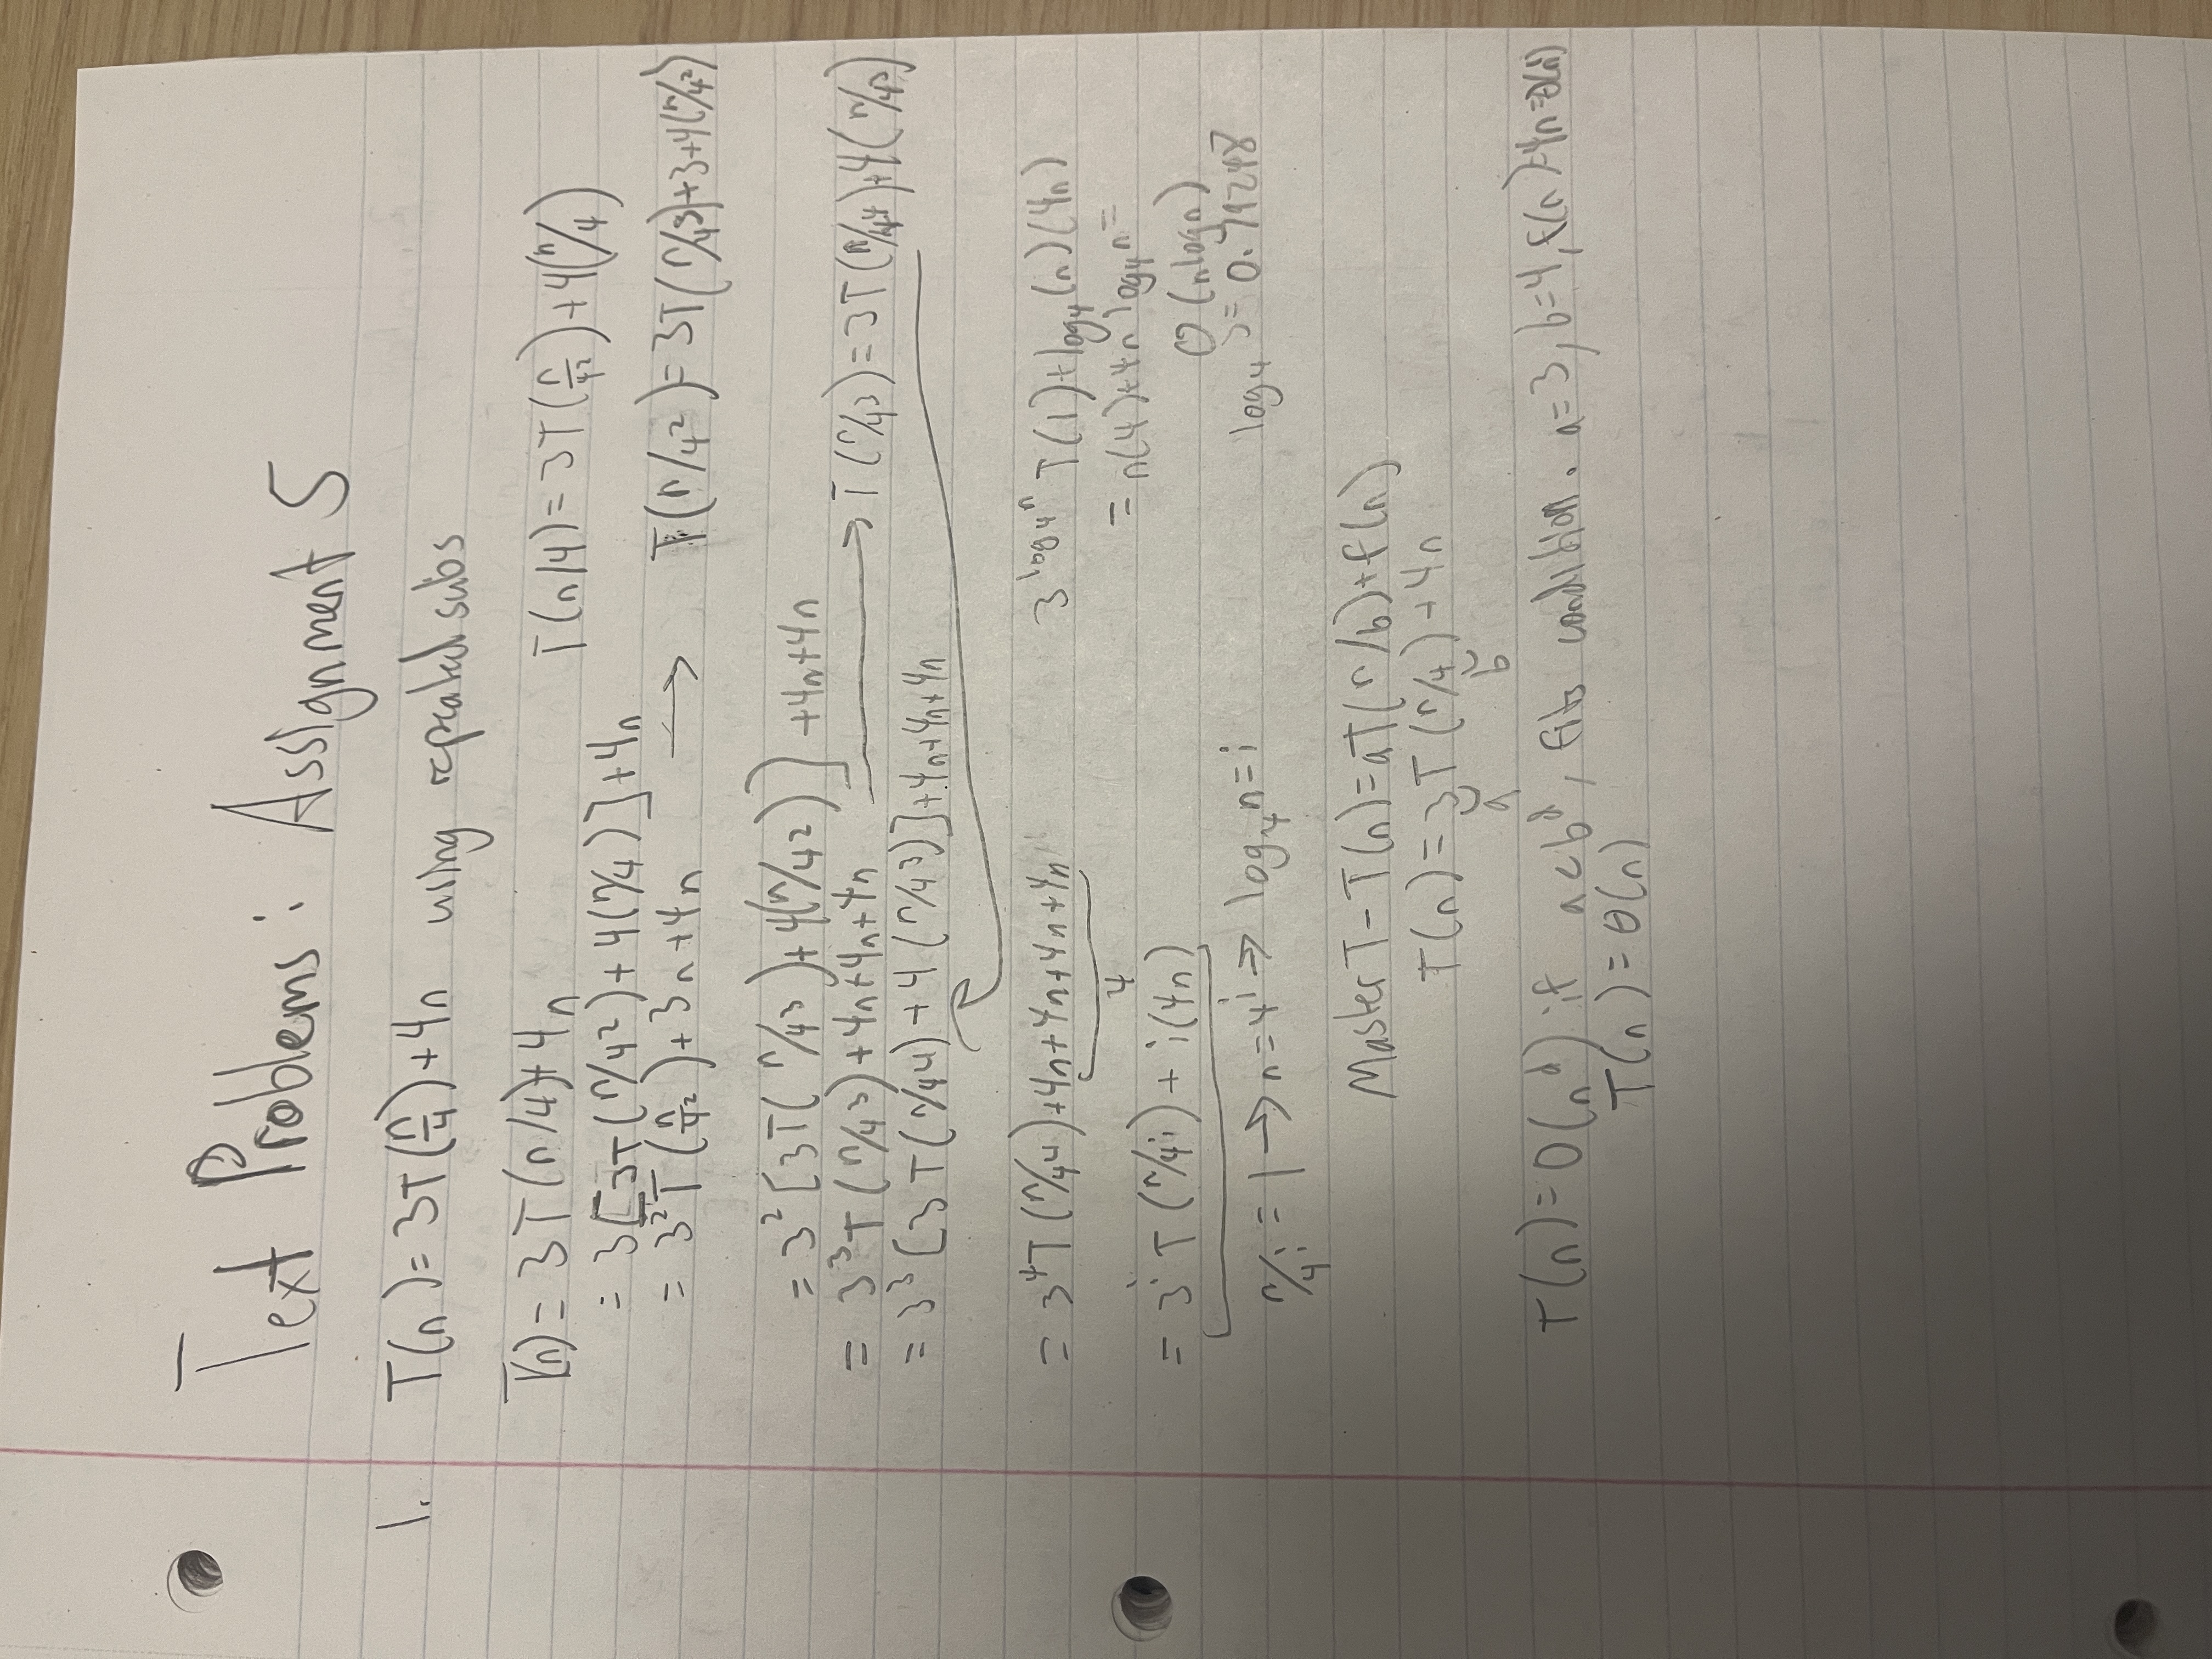 Text Problems: Assignment 5
1. T(n)=3T(n/4)+4n using repeated subs
T(n)=3T(n/4)+4n T(n/4)=3T(n/4²)+4(n/4)
=3[3T(n/4²)+4(n/4)]+4n
=3²T(n/4²)+3n+4n → T(n/4²)=3T(n/4³)+3+4(n/4²)
=3²[3T(n/4³)+4(n/4²)]+4n+4n
=3³T(n/4³)+4n+4n+4n → T(n/4³)=3T(n/4⁴)+4(n/4³)
=3³[3T(n/4⁴)+4(n/4³)]+4n+4n+4n
=3⁴T(n/4⁴)+4n+4n+4n+4n 3^(log₄n) T(1)+log₄(n)(4n)
4 =n(4)+4n log₄n=
=3ⁱT(n/4ⁱ)+i(4n) O(nlogn)
n/4ⁱ=1→n=4ⁱ→log₄n=i log₄3=0.79248
Master T-T(n)=aT(n/b)+f(n)
T(n)=3T(n/4)+4n
a b
T(n)=O(n^d) if a<b^d, fits condition. a=3, b=4, f(n)=4n=θ(n¹)
T(n)=θ(n)